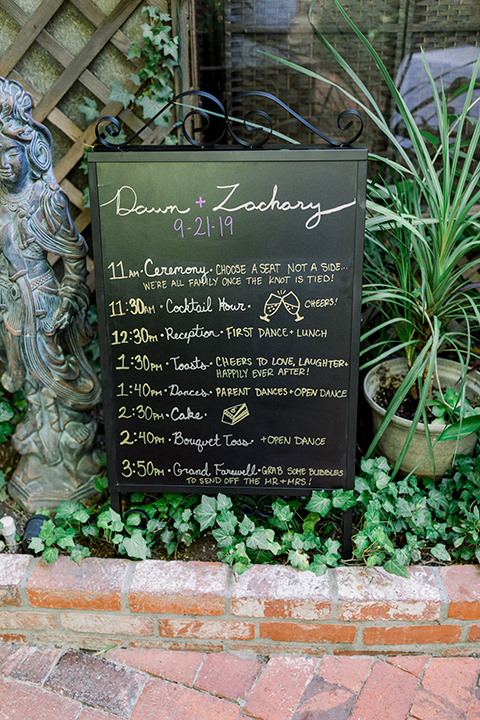 Dawn + Zachary
9-21-19
11 AM • Ceremony • CHOOSE A SEAT NOT A SIDE...
WE'RE ALL FAMILY ONCE THE KNOT IS TIED!
11:30AM • Cocktail Hour • CHEERS!
12:30PM • Reception • FIRST DANCE + LUNCH
1:30PM • Toasts • CHEERS TO LOVE, LAUGHTER +
HAPPILY EVER AFTER!
1:40PM • Dances • PARENT DANCES + OPEN DANCE
2:30PM • Cake •
2:40PM • Bouquet Toss • + OPEN DANCE
3:50PM • Grand Farewell • GRAB SOME BUBBLES
TO SEND OFF THE MR. + MRS!